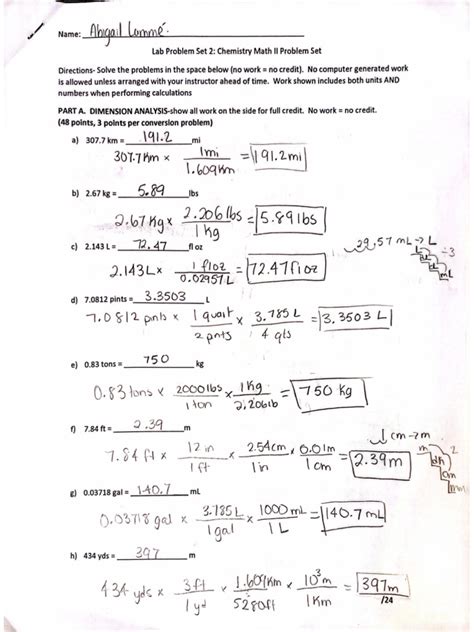 Name: Abigail Lommé
Lab Problem Set 2: Chemistry Math II Problem Set
Directions- Solve the problems in the space below (no work = no credit). No computer generated work
is allowed unless arranged with your instructor ahead of time. Work shown includes both units AND
numbers when performing calculations
PART A. DIMENSION ANALYSIS-show all work on the side for full credit. No work = no credit.
(48 points, 3 points per conversion problem)
a) 307.7 km = 191.2 mi
307.7 Km × 1mi / 1.609Km = 191.2mi
b) 2.67 kg = 5.89 lbs
2.67 Kg × 2.206 lbs / 1 Kg = 5.89 lbs
c) 2.143 L = 72.47 fl oz
29,57 mL → L
÷3
2.143L × 1 floz / 0.02957L = 72.47floz
d) 7.0812 pints = 3.3503 L
7.0812 pnts × 1 quart / 2 pnts × 3.785 L / 4 qts = 3.3503 L
e) 0.83 tons = 750 kg
0.83 tons × 2000 lbs / 1 ton × 1 Kg / 2.206lb = 750 kg
f) 7.84 ft = 2.39 m
cm → m
7.84 ft × 12 in / 1 ft × 2.54cm / 1 in × 0.01m / 1 cm = 2.39m
m dm cm mm 2
g) 0.03718 gal = 140.7 mL
0.03718 gal × 3.785L / 1 gal × 1000 mL / 1 L = 140.7 mL
h) 434 yds = 397 m
434 yds × 3 ft / 1 yd × 1.609Km / 5280ft × 10³m / 1Km = 397m
/24